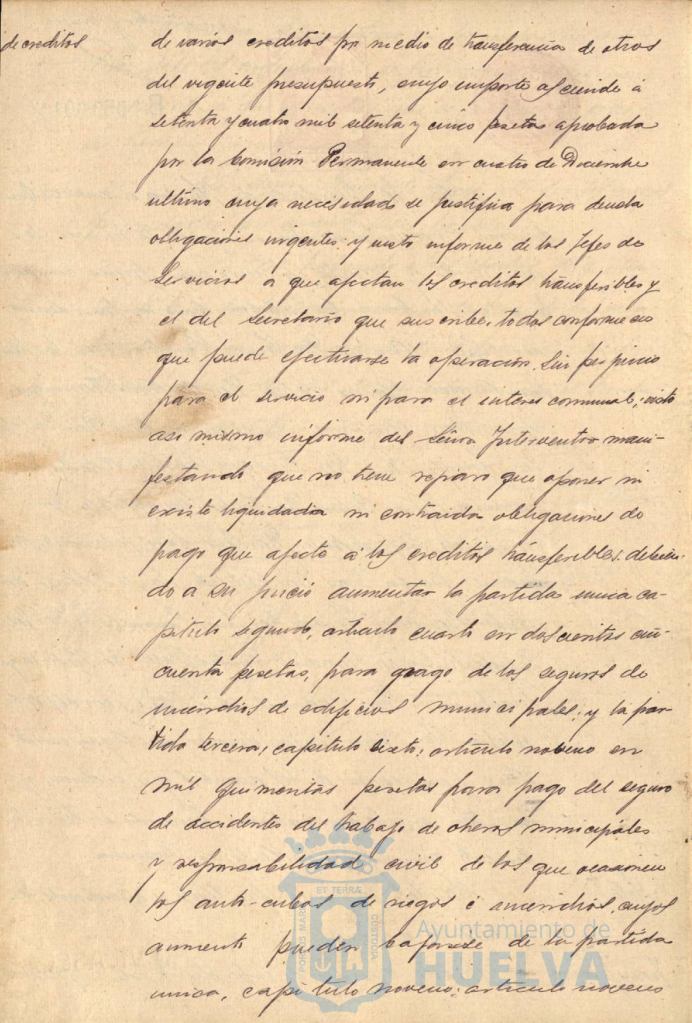 de creditos
de varios creditos por medio de transferencia de otros
del vigente presupuesto, cuyo importe asciende á
setenta y cuatro mil setenta y cinco pesetas aprobada
por la Comisión Permanente en cuatro de Diciembre
ultimo cuya necesidad se justifica para
obligaciones urgentes: y visto informe de los Jefes de
Servicios a que afectan los creditos transferibles y
el del Secretario que suscribe, todos conformes en
que puede efectuarse la operación sin perjuicio
para el servicio ni para el interes comunal; visto
asi mismo informe del Señor Interventor mani-
festando que no tiene reparo que oponer ni
existe liquidada ni contraida obligaciones de
pago que afecte á los creditos transferibles debien-
do a su juicio aumentar la partida unica ca-
pitulo segundo, articulo cuarto en doscientas cin-
cuenta pesetas, para pago de los seguros de
incendios de edificios municipales, y la par-
tida tercera, capitulo sexto, articulo noveno en
mil quinientas pesetas para pago del seguro
de accidentes del trabajo de obreros municipales
y responsabilidad civil de los que ocasionen
los auto-cubas de riegos é incendios, cuyos
aumento pueden bajarse de la partida
unica, capitulo noveno; articulo noveno
ET TERRÆ
PORTUS MARIS
CUSTODIA
Ayuntamiento de
HUELVA